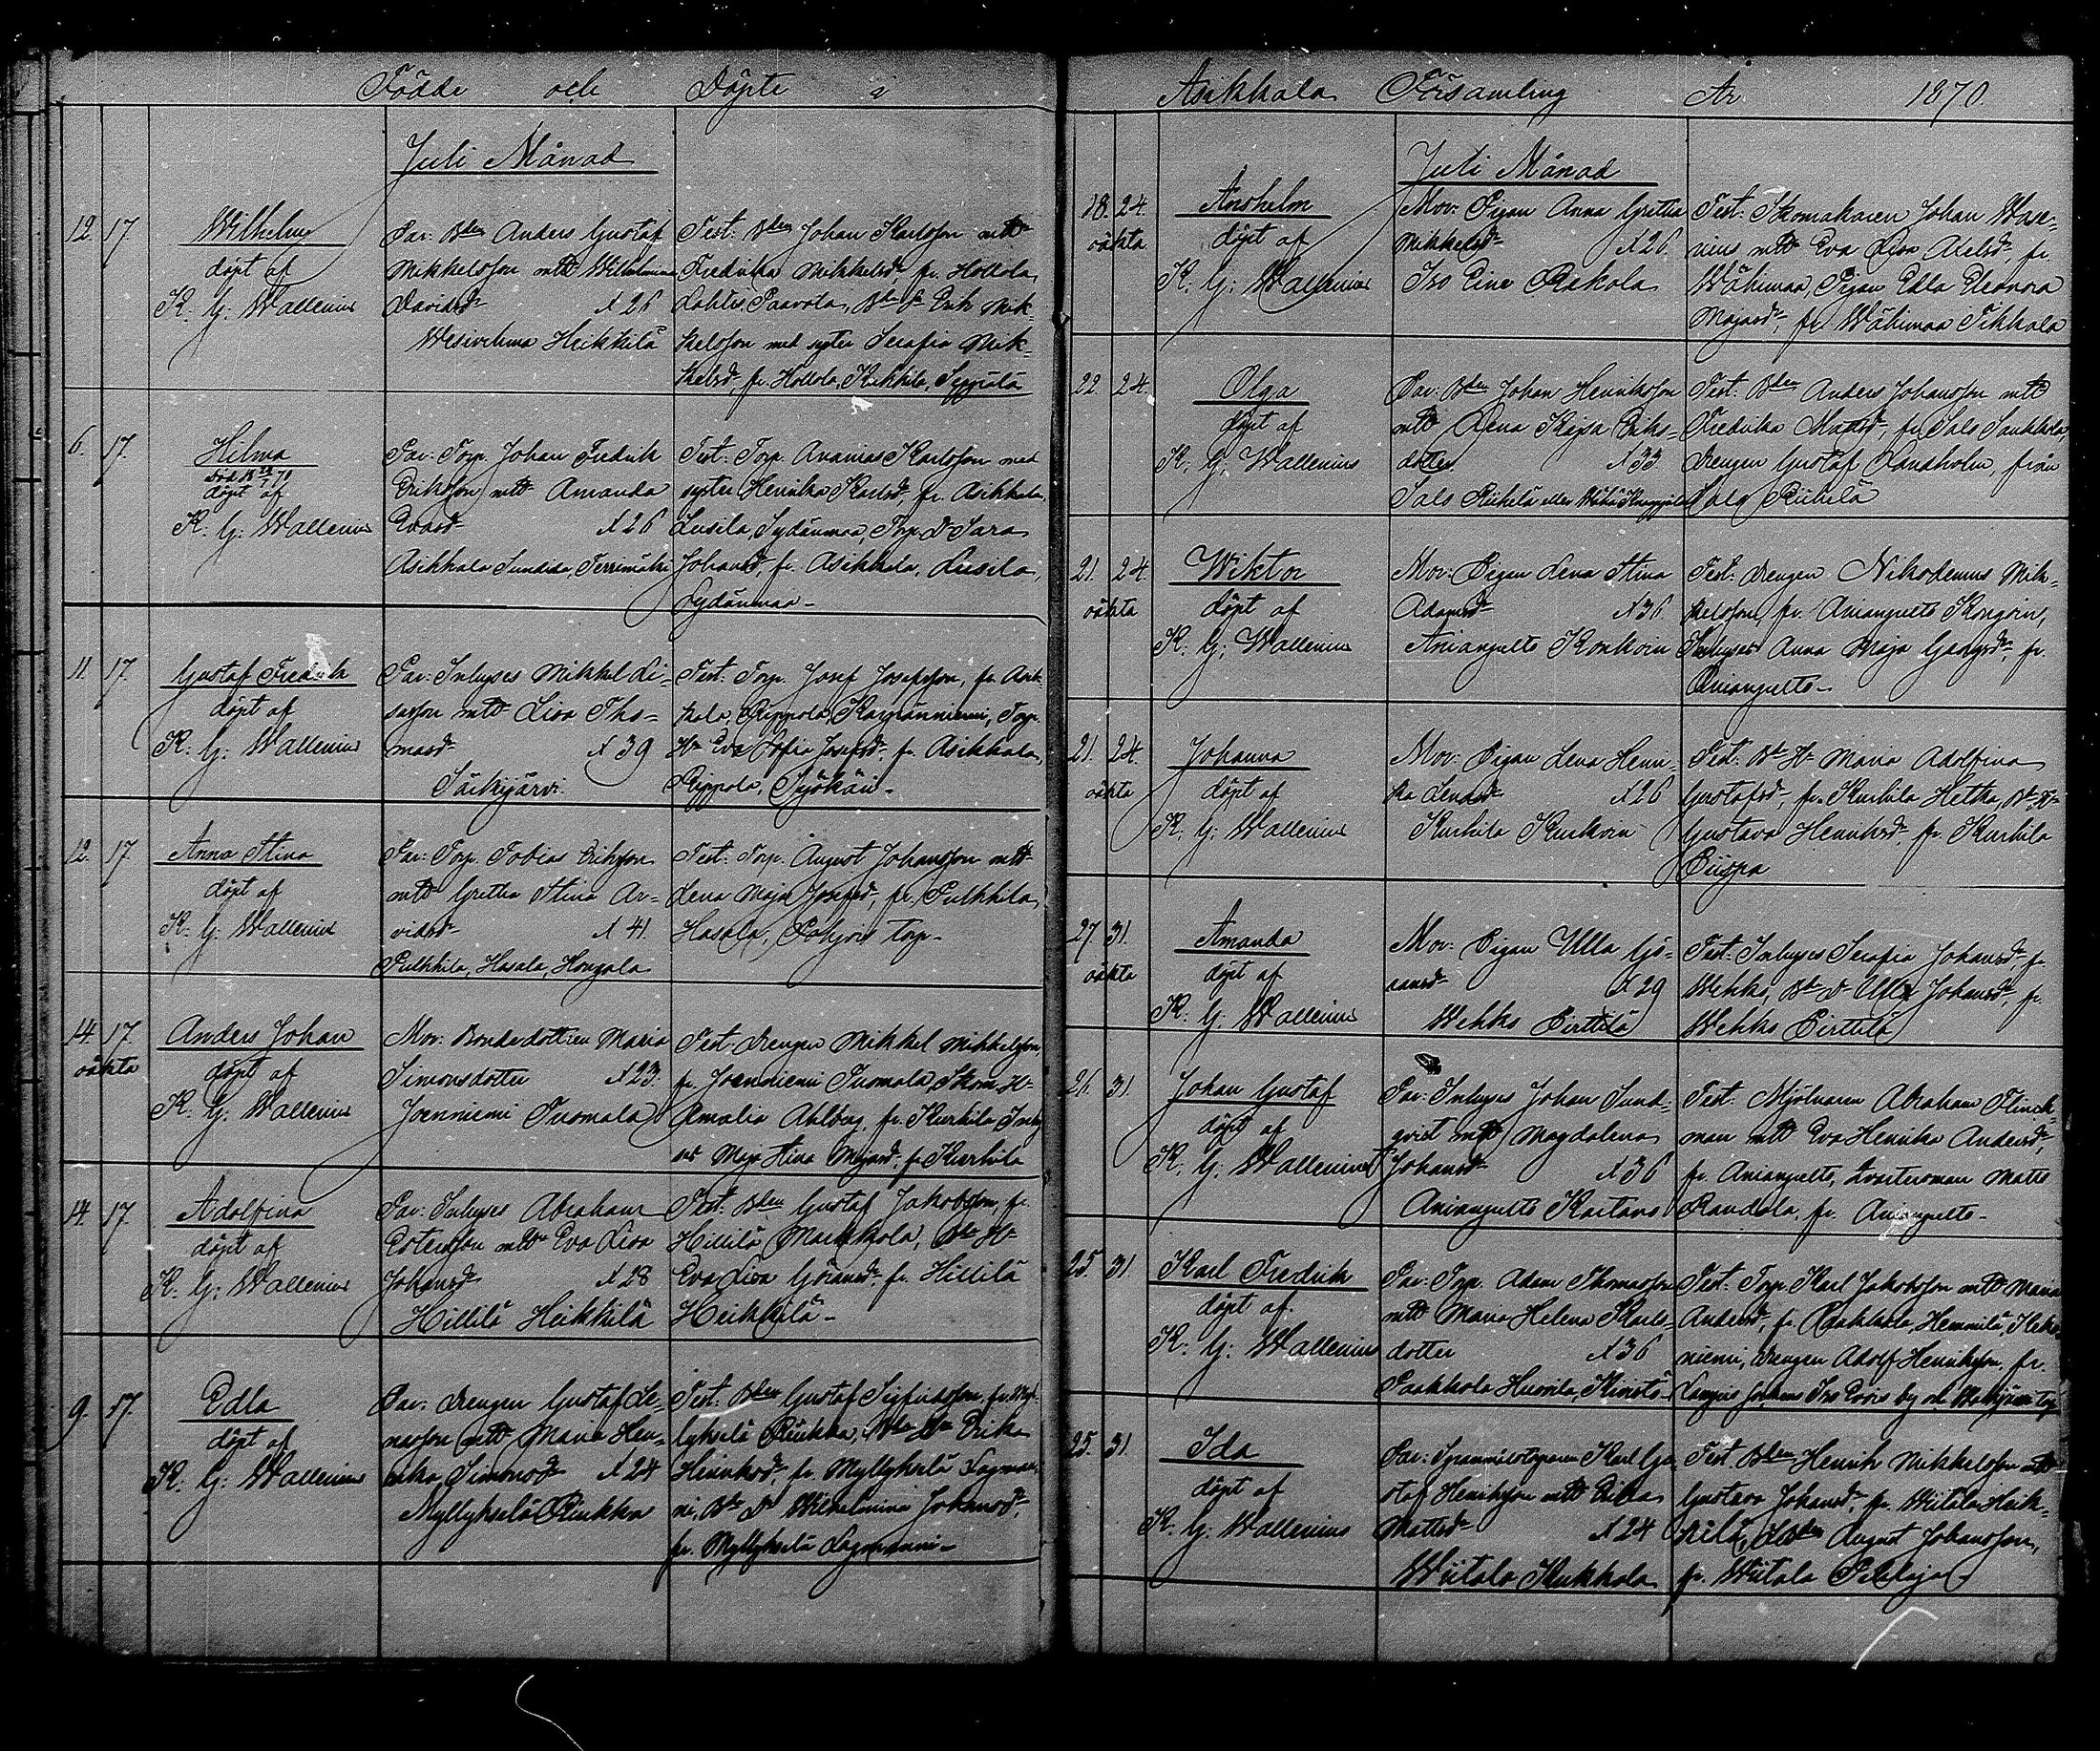 Födde och Döpte i
Juli Månad
12. 17. Wilhelm
döpt af
K. G. Wallenius
Par: Bden Anders Gustaf
Mikkelsson mtt Wilhelmina
Davidsd. Å 26
Wesivehma Heikkilä
Test: Bden Johan Karlsson mtt
Fredrika Mikkelsd, fr. Hollola
Lahtis Paavola, Erik Mik-
kelsson med syster Serafia Mik-
kelsd, fr. Hollola, Kukkila, Seppälä
6. 17. Hilma
döpt af
K. G. Wallenius
Par: Torp. Johan Fredrik
Eriksson mtt Amanda
Evasd. Å 26
Asikkala Sundila, Terrimäki
Test: Torp. Ananias Karlsson med
syster Henrika Karlsd. fr. Asikkala,
Lusila, Sydänmaa, Torp. D. Sara
Johansd, fr. Asikkala, Lusila,
Sydänmaa
11. 17. Gustaf Fredrik
döpt af
K. G. Wallenius
Par: Inhyses Mikkel Li-
sasson mtt Lisa Tho-
masd. Å 39
Särkijärvi
Test: Torp. Josef Josefsson, fr. Asik-
kala, Reppola, Karpänniemi, Torp.
H. Eva Sofia Josefsd. fr. Asikkala,
Reppola, Syökäri
12. 17. Anna Stina
döpt af
K. G. Wallenius
Par: Torp. Tobias Eriksson
mtt Gretha Stina Ar-
vidsd. Å 41.
Pulkkila, Hasala, Hongala
Test: Torp. August Johansson mtt
Lena Maja Josefsd, fr. Pulkkila,
Hasala, Pohjois torp
14. 17. Anders Johan
oäkta döpt af
K. G. Wallenius
Mor: Bondedottren Maria
Simonsdotter Å 23.
Joenniemi Tuomala
Test: Drengen Mikkel Mikkelsson,
fr. Joenniemi Tuomala, Skom. H.
Amalia Ahlberg, fr. Kurhila, Inhy-
ses Maja Stina fr. Kurhila
14. 17. Adolfina
döpt af
K. G. Wallenius
Par: Inhyses Abraham
Estersson mtt Eva Lisa
Johansd. Å 28
Hillilä Heikkilä
Test: Bden Gustaf Jakobsson, fr.
Hillilä Markkola, Bde H.
Eva Lisa Göransd. fr. Hillilä
Heikkilä
9. 17. Edla
döpt af
K. G. Wallenius
Par: Drengen Gustaf Le-
nasson mtt Maria Hen-
rika Simonsd. Å 24
Myllykselä Riukka
Test: Bden Gustaf Sigfridsson, fr. Myl-
lykselä Riukka, Bde Dr Erika
Henriksd. fr. Myllykselä Lagman-
ni, Bde D. Wilhelmina Johansd.
fr. Myllykselä Lagmanni
Asikkala Församling År 1870.
Juli Månad
18. 24. Anshelm
oäkta döpt af
K. G. Wallenius
Mor: Pigan Anna Gretha
Mikkelsd. Å 26.
Iso Eine Rekola
Test: Skomakaren Johan Wase-
nius, mtt Eva Lisa Axelsd, fr.
Wähimaa, Pigan Edla Eleonora
Majasd, fr. Wähimaa Tikkala
22. 24. Olga
döpt af
K. G. Wallenius
Par: Bden Johan Henriksson
mtt Lena Kajsa Eriks-
dotter Å 33
Sals Riihelä eller
Test: Bden Anders Johansson mtt
Fredrika Mattsd, fr. Sals Saukkola,
drengen Gustaf Randholm, från
Sals Riihelä
21. 24. Wiktor
oäkta döpt af
K. G. Wallenius
Mor: Pigan Lena Stina
Adamsd. Å 36
Anianpelto Konkoin
Test: drengen Nikodemus Mik-
kelsson, fr. Anianpelto Kongoin,
Inhyses Anna Maja fr.
Anianpelto
21. 24. Johanna
oäkta döpt af
K. G. Wallenius
Mor: Pigan Lena Henri-
ka Lenasd. Å 26
Kurhila
Test: Bde H. Maria Adolfina
Gustafsd, fr. Kurhila Hetka, Bde H.
Gustava Henriksd. fr. Kurhila
Piispa
27. 31. Amanda
oäkta döpt af
K. G. Wallenius
Mor: Pigan Ulla Gö-
ransd. Å 29
Wehks Pirttilä
Test: Inhyses Serafia Johansd, fr.
Wehks, Bde D. Ulla Johansd, fr.
Wehks Pirttilä
26. 31. Johan Gustaf
döpt af
K. G. Wallenius
Par: Inhyses Johan Sund-
qvist mtt Magdalena
Johansd. Å 36
Anianpelto Kaitans
Test: Mjölnaren Abraham Flinck-
man mtt Eva Henrika Andersd,
fr. Anianpelto, Qvartersman Matts
Randela, fr. Anianpelto
25. 31. Karl Fredrik
döpt af
K. G. Wallenius
Par: Torp. Adam Thomasson
mtt Maria Helena Karls-
dotter Å 36
Paakkola
Test: Torp. Karl Jakobsson mtt Maria
Andersd, fr. Paakkola, Hemmilä,
niemi, drengen Adolf Henriksson, fr.
25. 31. Ida
döpt af
K. G. Wallenius
Par: Karl Gu-
staf Henriksson mtt Erika
Mattsd. Å 24
Wiitala Kukkola
Test: Bden Henrik Mikkelsson mtt
Gustava Johansd, fr. Wiitala Heik-
kilä, August Johansson,
fr. Wiitala